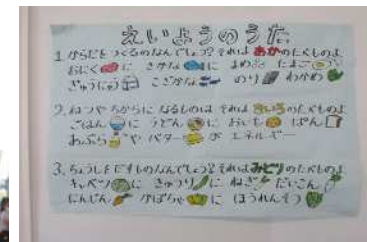 えいようのうた
1. からだをつくるのなんでしょう?それは あかのたべもの
おにくに さかなに まめ たまご
ぎゅうにゅう こざかな のり わかめ
2. ねつやちからに なるものは それは きいろのたべもの
ごはんに うどんに おいも ぱん
あぶらやバターが エネルギー
3. ちょうしをだすものなんでしょう?それはみどりのたべもの
キャベツに きゅうりに ねぎ だいこん
にんじん かぼちゃに ほうれんそう